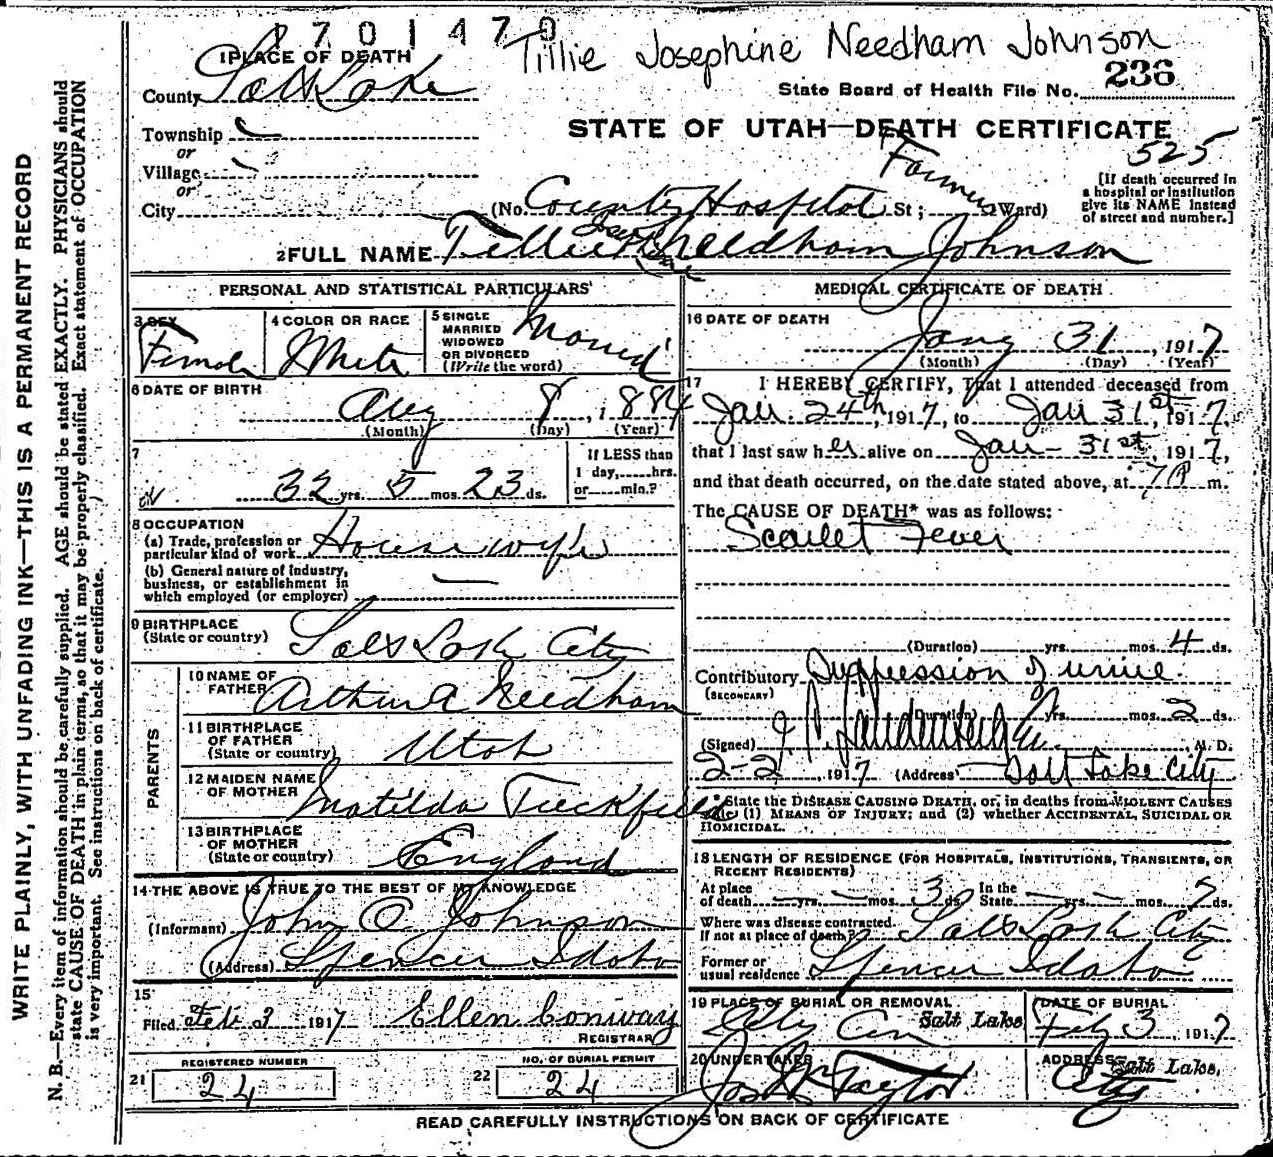 1701470
Tillie Josephine Needham Johnson
1 PLACE OF DEATH
236
County Salt Lake
State Board of Health File No.
Township
or
STATE OF UTAH—DEATH CERTIFICATE
525
Village
or
City
(No. County Hospital St; Ward)
[If death occurred in
a hospital or institution
give its NAME instead
of street and number.]
2 FULL NAME Tillie Needham Johnson
PERSONAL AND STATISTICAL PARTICULARS
3 SEX
Female
4 COLOR OR RACE
White
5 SINGLE
MARRIED
WIDOWED
OR DIVORCED
(Write the word)
Married
6 DATE OF BIRTH
Aug 8, 1884
(Month) (Day) (Year)
7
32 yrs. 5 mos. 23 ds.
If LESS than
1 day,......hrs.
or......min.?
8 OCCUPATION
(a) Trade, profession or
particular kind of work Housewife
(b) General nature of industry,
business, or establishment in
which employed (or employer) —
9 BIRTHPLACE
(State or country) Salt Lake City
PARENTS
10 NAME OF
FATHER Arthur A Needham
11 BIRTHPLACE
OF FATHER
(State or country) Utah
12 MAIDEN NAME
OF MOTHER Matilda Tuckfield
13 BIRTHPLACE
OF MOTHER
(State or country) England
14 THE ABOVE IS TRUE TO THE BEST OF MY KNOWLEDGE
(Informant) John O Johnson
(Address) Spencer Idaho
15
Filed Feb 3 1917 Ellen Conway
REGISTRAR
REGISTERED NUMBER
21 24
NO. OF BURIAL PERMIT
22 24
MEDICAL CERTIFICATE OF DEATH
16 DATE OF DEATH
Jany 31, 1917
(Month) (Day) (Year)
17 I HEREBY CERTIFY, That I attended deceased from
Jan. 24th, 1917, to Jan 31st, 1917,
that I last saw her alive on Jan - 31st, 1917,
and that death occurred, on the date stated above, at 7 P m.
The CAUSE OF DEATH* was as follows:
Scarlet Fever
(Duration) yrs. mos. 4 ds.
Contributory Suppression of urine
(SECONDARY)
(Duration) yrs. mos. 2 ds.
(Signed) M. D.
2-2, 1917 (Address) Salt Lake City
* State the DISEASE CAUSING DEATH, or, in deaths from VIOLENT CAUSES
state (1) MEANS OF INJURY; and (2) whether ACCIDENTAL, SUICIDAL OR
HOMICIDAL.
18 LENGTH OF RESIDENCE (FOR HOSPITALS, INSTITUTIONS, TRANSIENTS, OR
RECENT RESIDENTS)
At place
of death — yrs. — mos. 3 ds.
In the
State — yrs. — mos. ds.
Where was disease contracted
If not at place of death? Salt Lake City
Former or
usual residence Spencer Idaho
19 PLACE OF BURIAL OR REMOVAL
City Cem Salt Lake
DATE OF BURIAL
Feby 3, 1917
20 UNDERTAKER
Taylor
ADDRESS Salt Lake,
City
READ CAREFULLY INSTRUCTIONS ON BACK OF CERTIFICATE
WRITE PLAINLY, WITH UNFADING INK—THIS IS A PERMANENT RECORD
N. B.—Every item of information should be carefully supplied. AGE should be stated EXACTLY. PHYSICIANS should
state CAUSE OF DEATH in plain terms, so that it may be properly classified. Exact statement of OCCUPATION
is very important. See instructions on back of certificate.